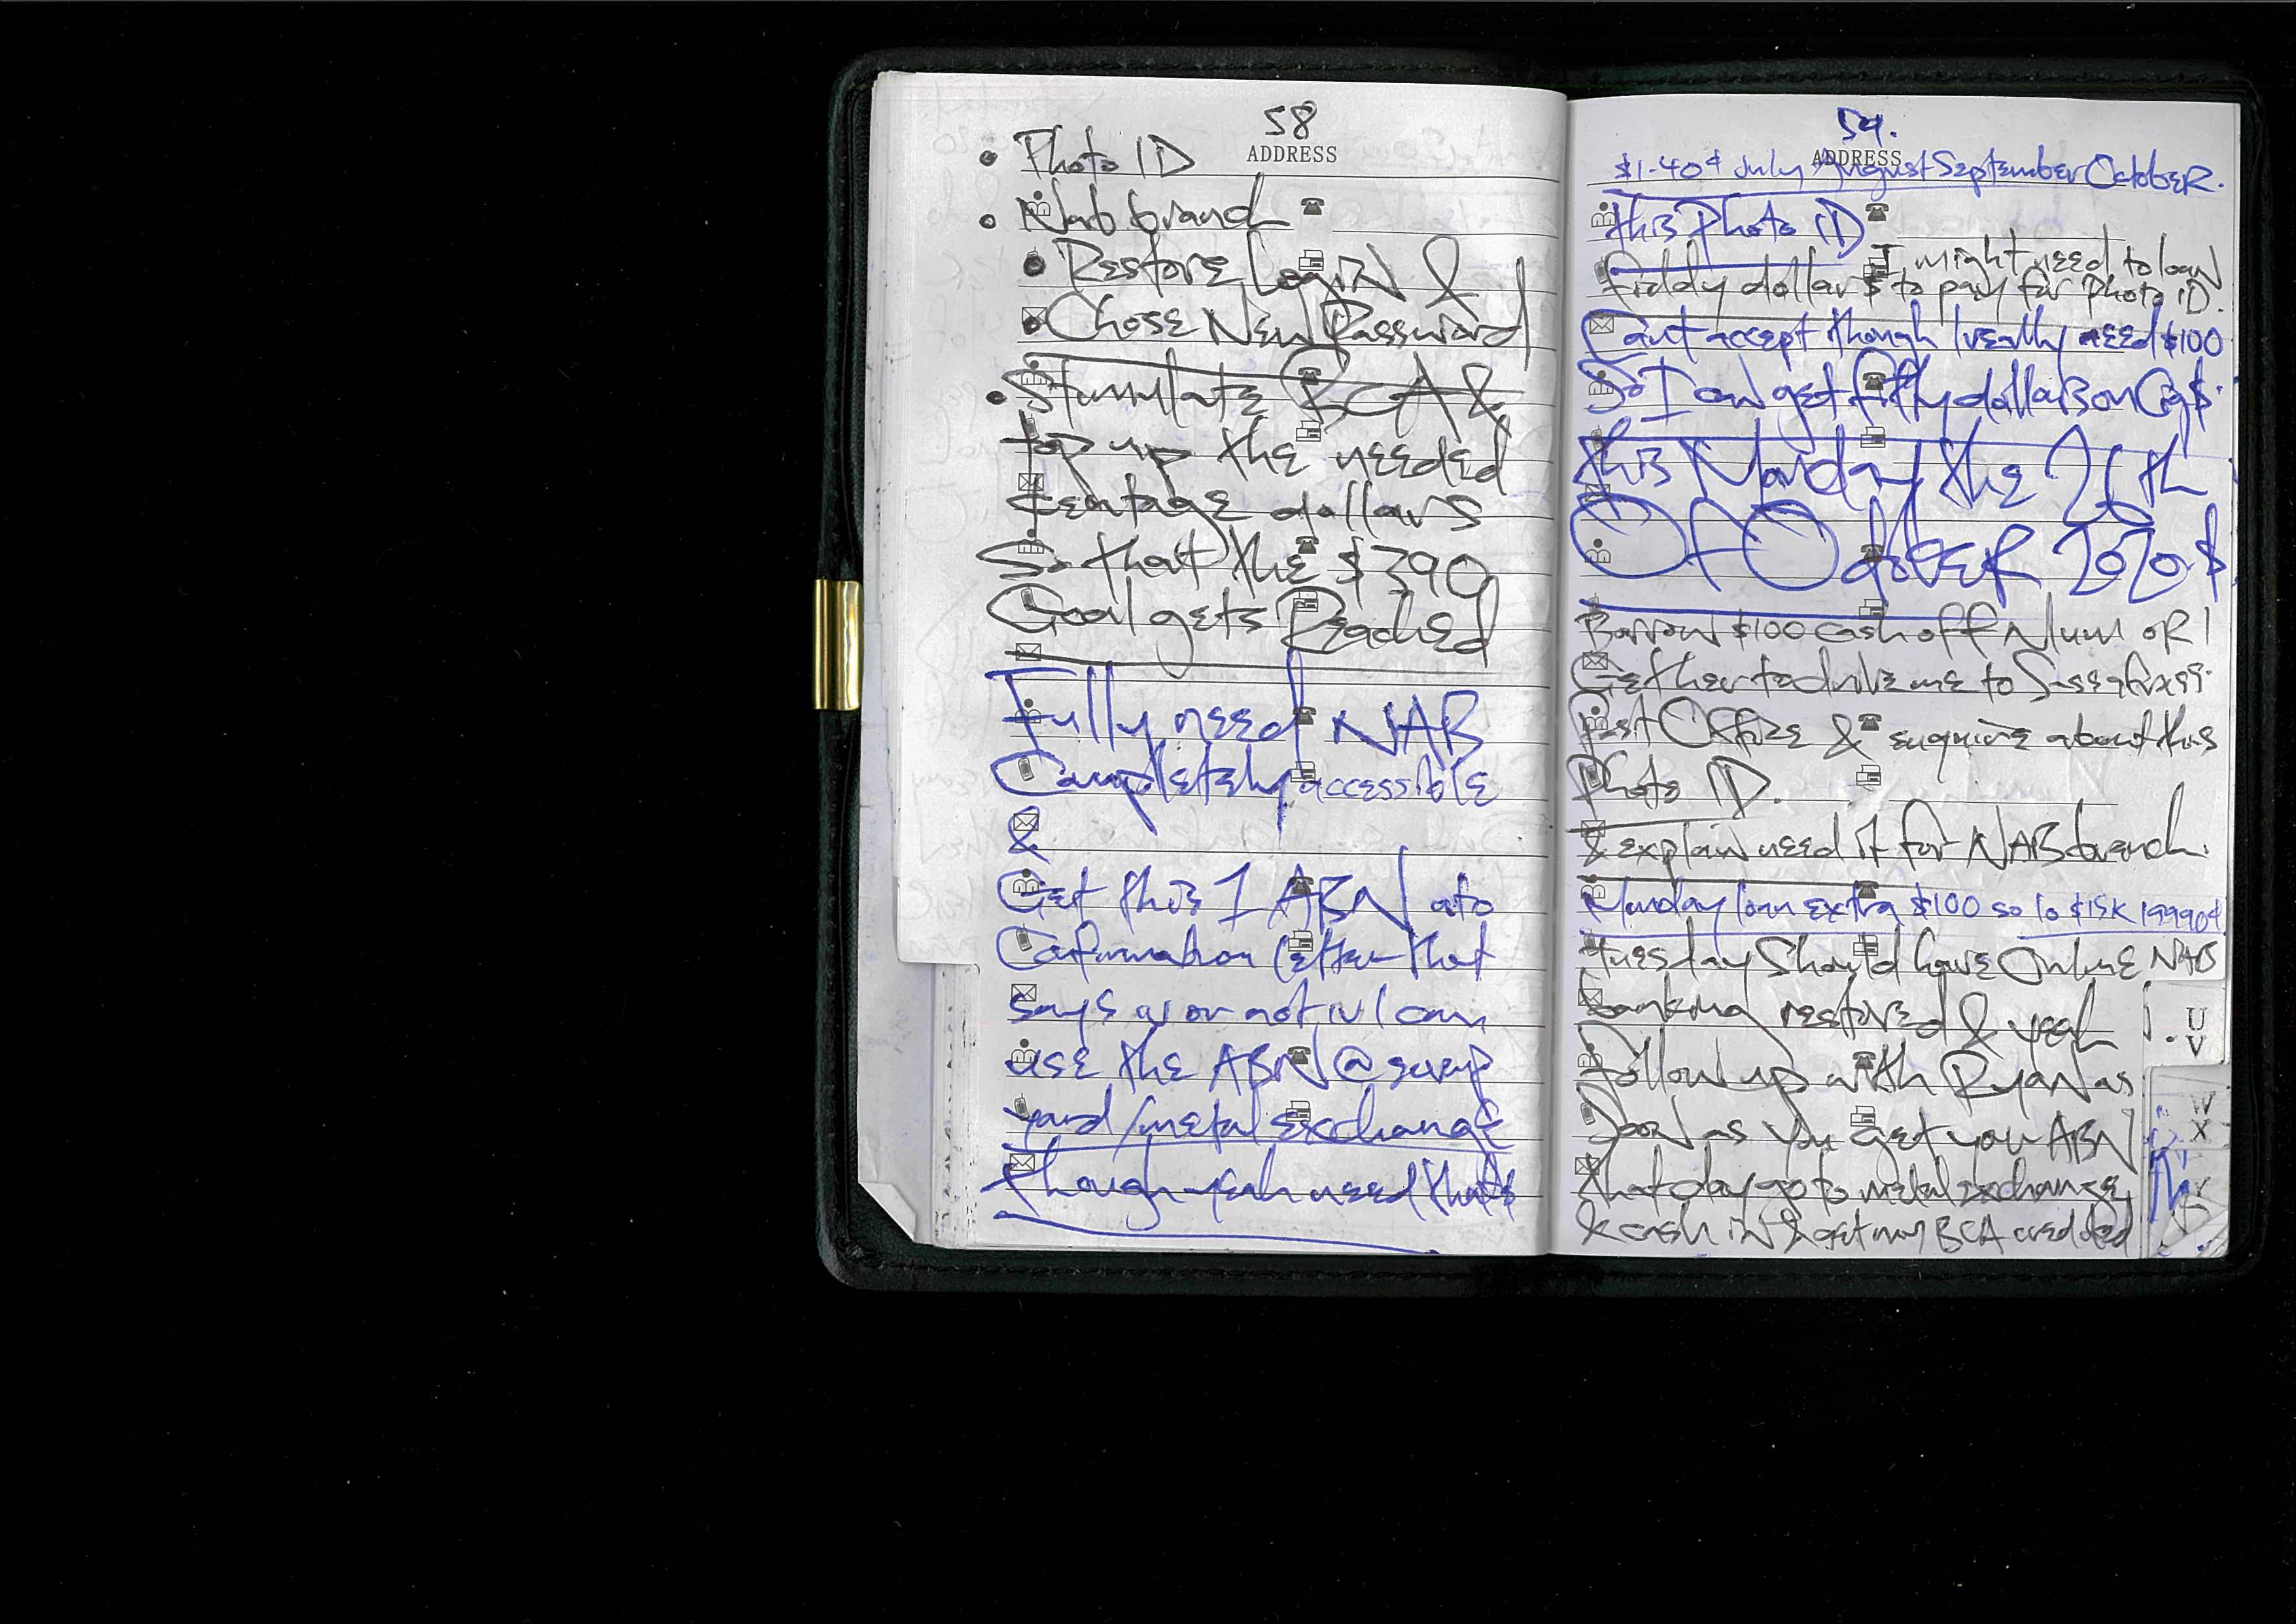 58
ADDRESS
• Photo ID
• Nab brand
• Restore Login &
• Chose New Password
• Stimulate BCA &
top up the needed
dollars
So that the $390
Goal gets Reached
Fully need NAB
Completely accessible
&
Get this 1 ABN ato
Confirmation letter that
says or not I can
use the ABN @ scrap
yard/metal exchange
though yeah need that
59.
ADDRESS
$1.40¢ July August September OctobeR.
this Photo ID
I might need to loan
fiddy dollar$ to pay for Photo ID.
Cant accept though I really need $100
So I can get fifty dollars on
this Monday the
Of OctobeR 2020
Borrow $100 cash off Mum oR I
Get her to drive me to
Post Office & enquire about this
Photo ID.
& explain need it for NAB branch.
Monday loan extra $100 so $15K
tuesday Should have Online NAB
banking restored & yeah
Follow up with Ryan as
Soon as you get your ABN
that day go to metal exchange
& cash in & get my BCA credited
U
V
W
X
Y